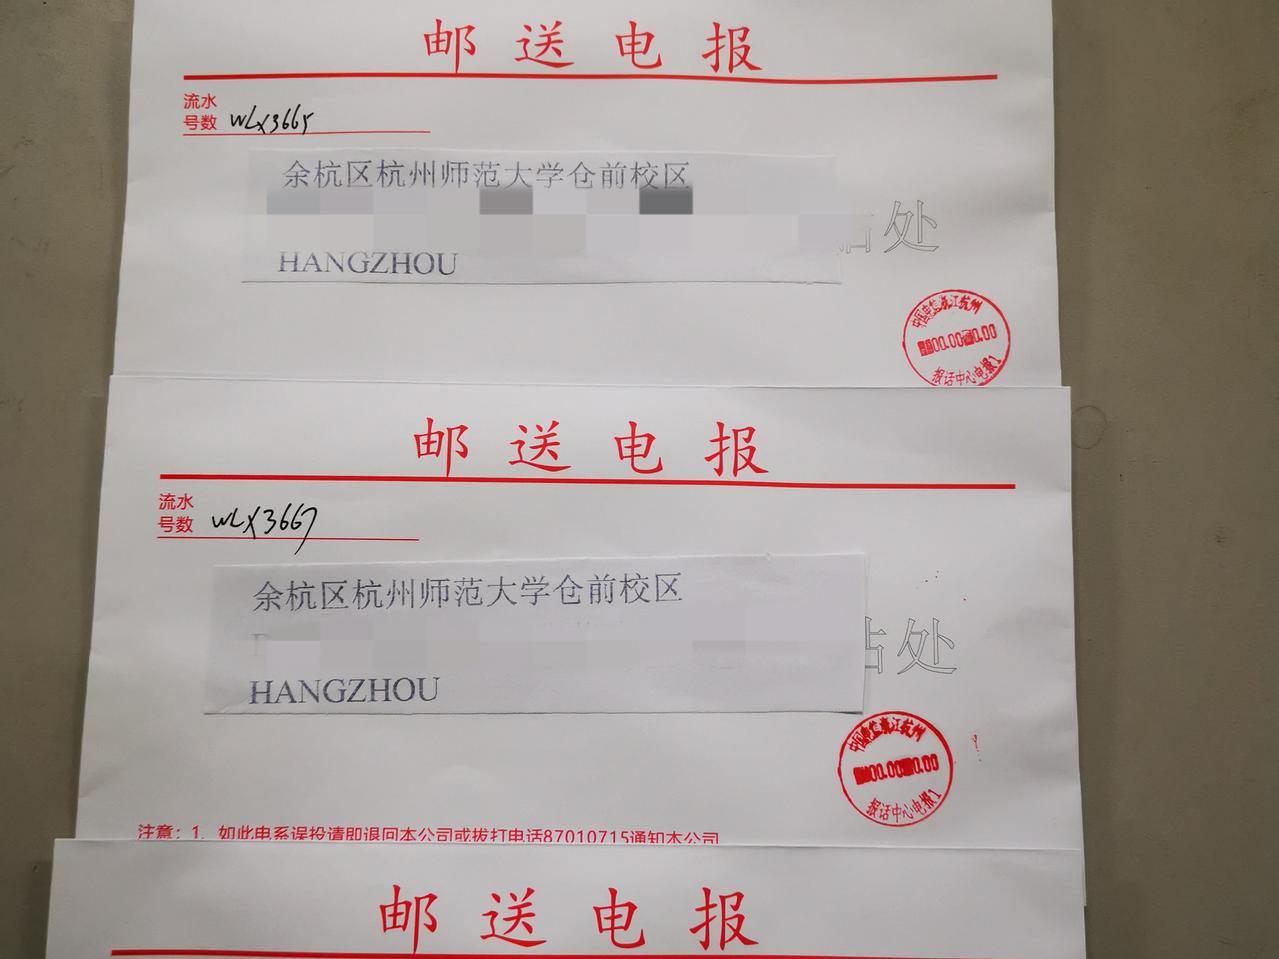 邮送电报
流水
号数 WLX3665
余杭区杭州师范大学仓前校区
HANGZHOU
处
中国电信浙江杭州
00.00
0.00
报话中心电报1
邮送电报
流水
号数 WLX3667
余杭区杭州师范大学仓前校区
HANGZHOU
处
中国电信浙江杭州
00.00
0.00
报话中心电报1
注意：1、如此电系误投请即退回本公司或拨打电话87010715通知本公司
邮送电报